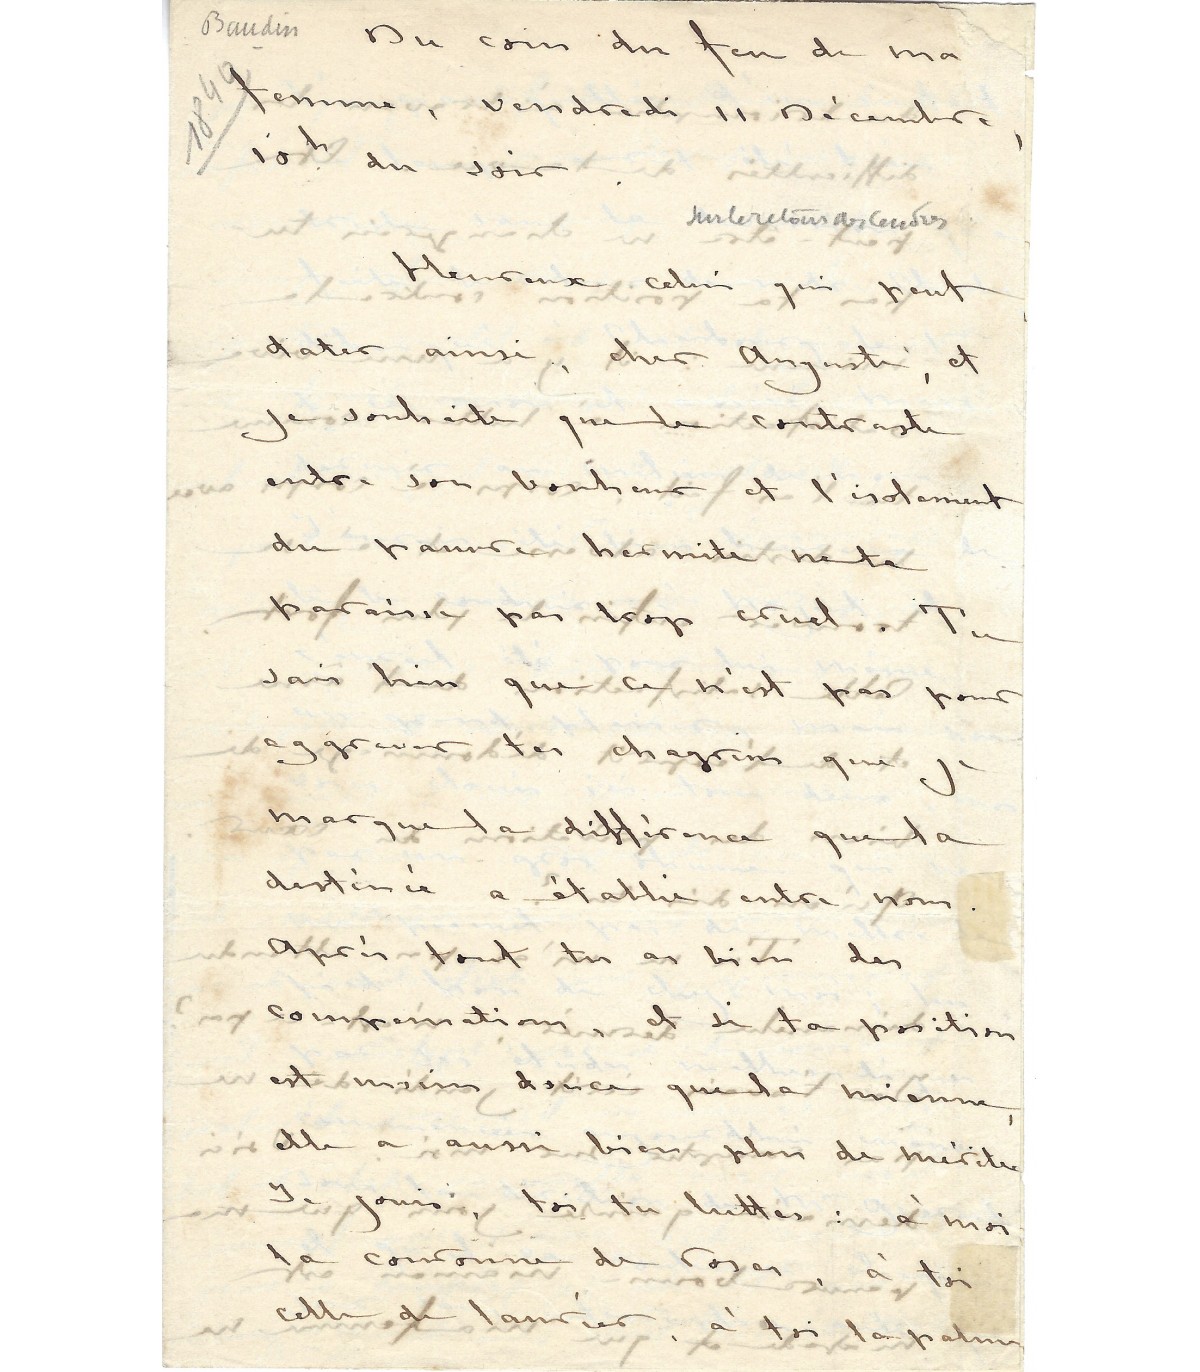 Baudin
1840
Du coin du feu de ma
femme, vendredi 11 Décembre,
10h du soir.
sur le retour des cendres
Heureux celui qui peut
dater ainsi, cher Auguste, et
je souhaite que le contraste
entre son bonheur et l'isolement
du pauvre hermite ne te
paraisse pas trop cruel. Tu
sais bien que ce n'est pas pour
aggraver tes chagrins que je
marque la différence que la
destinée a établie entre nous.
Après tout tu as bien des
compensations, et si ta position
est moins douce que la mienne,
elle a aussi bien plus de mérite
Je jouis, toi tu luttes : à moi
la couronne de roses, à toi
celle de laurier, à toi la palme